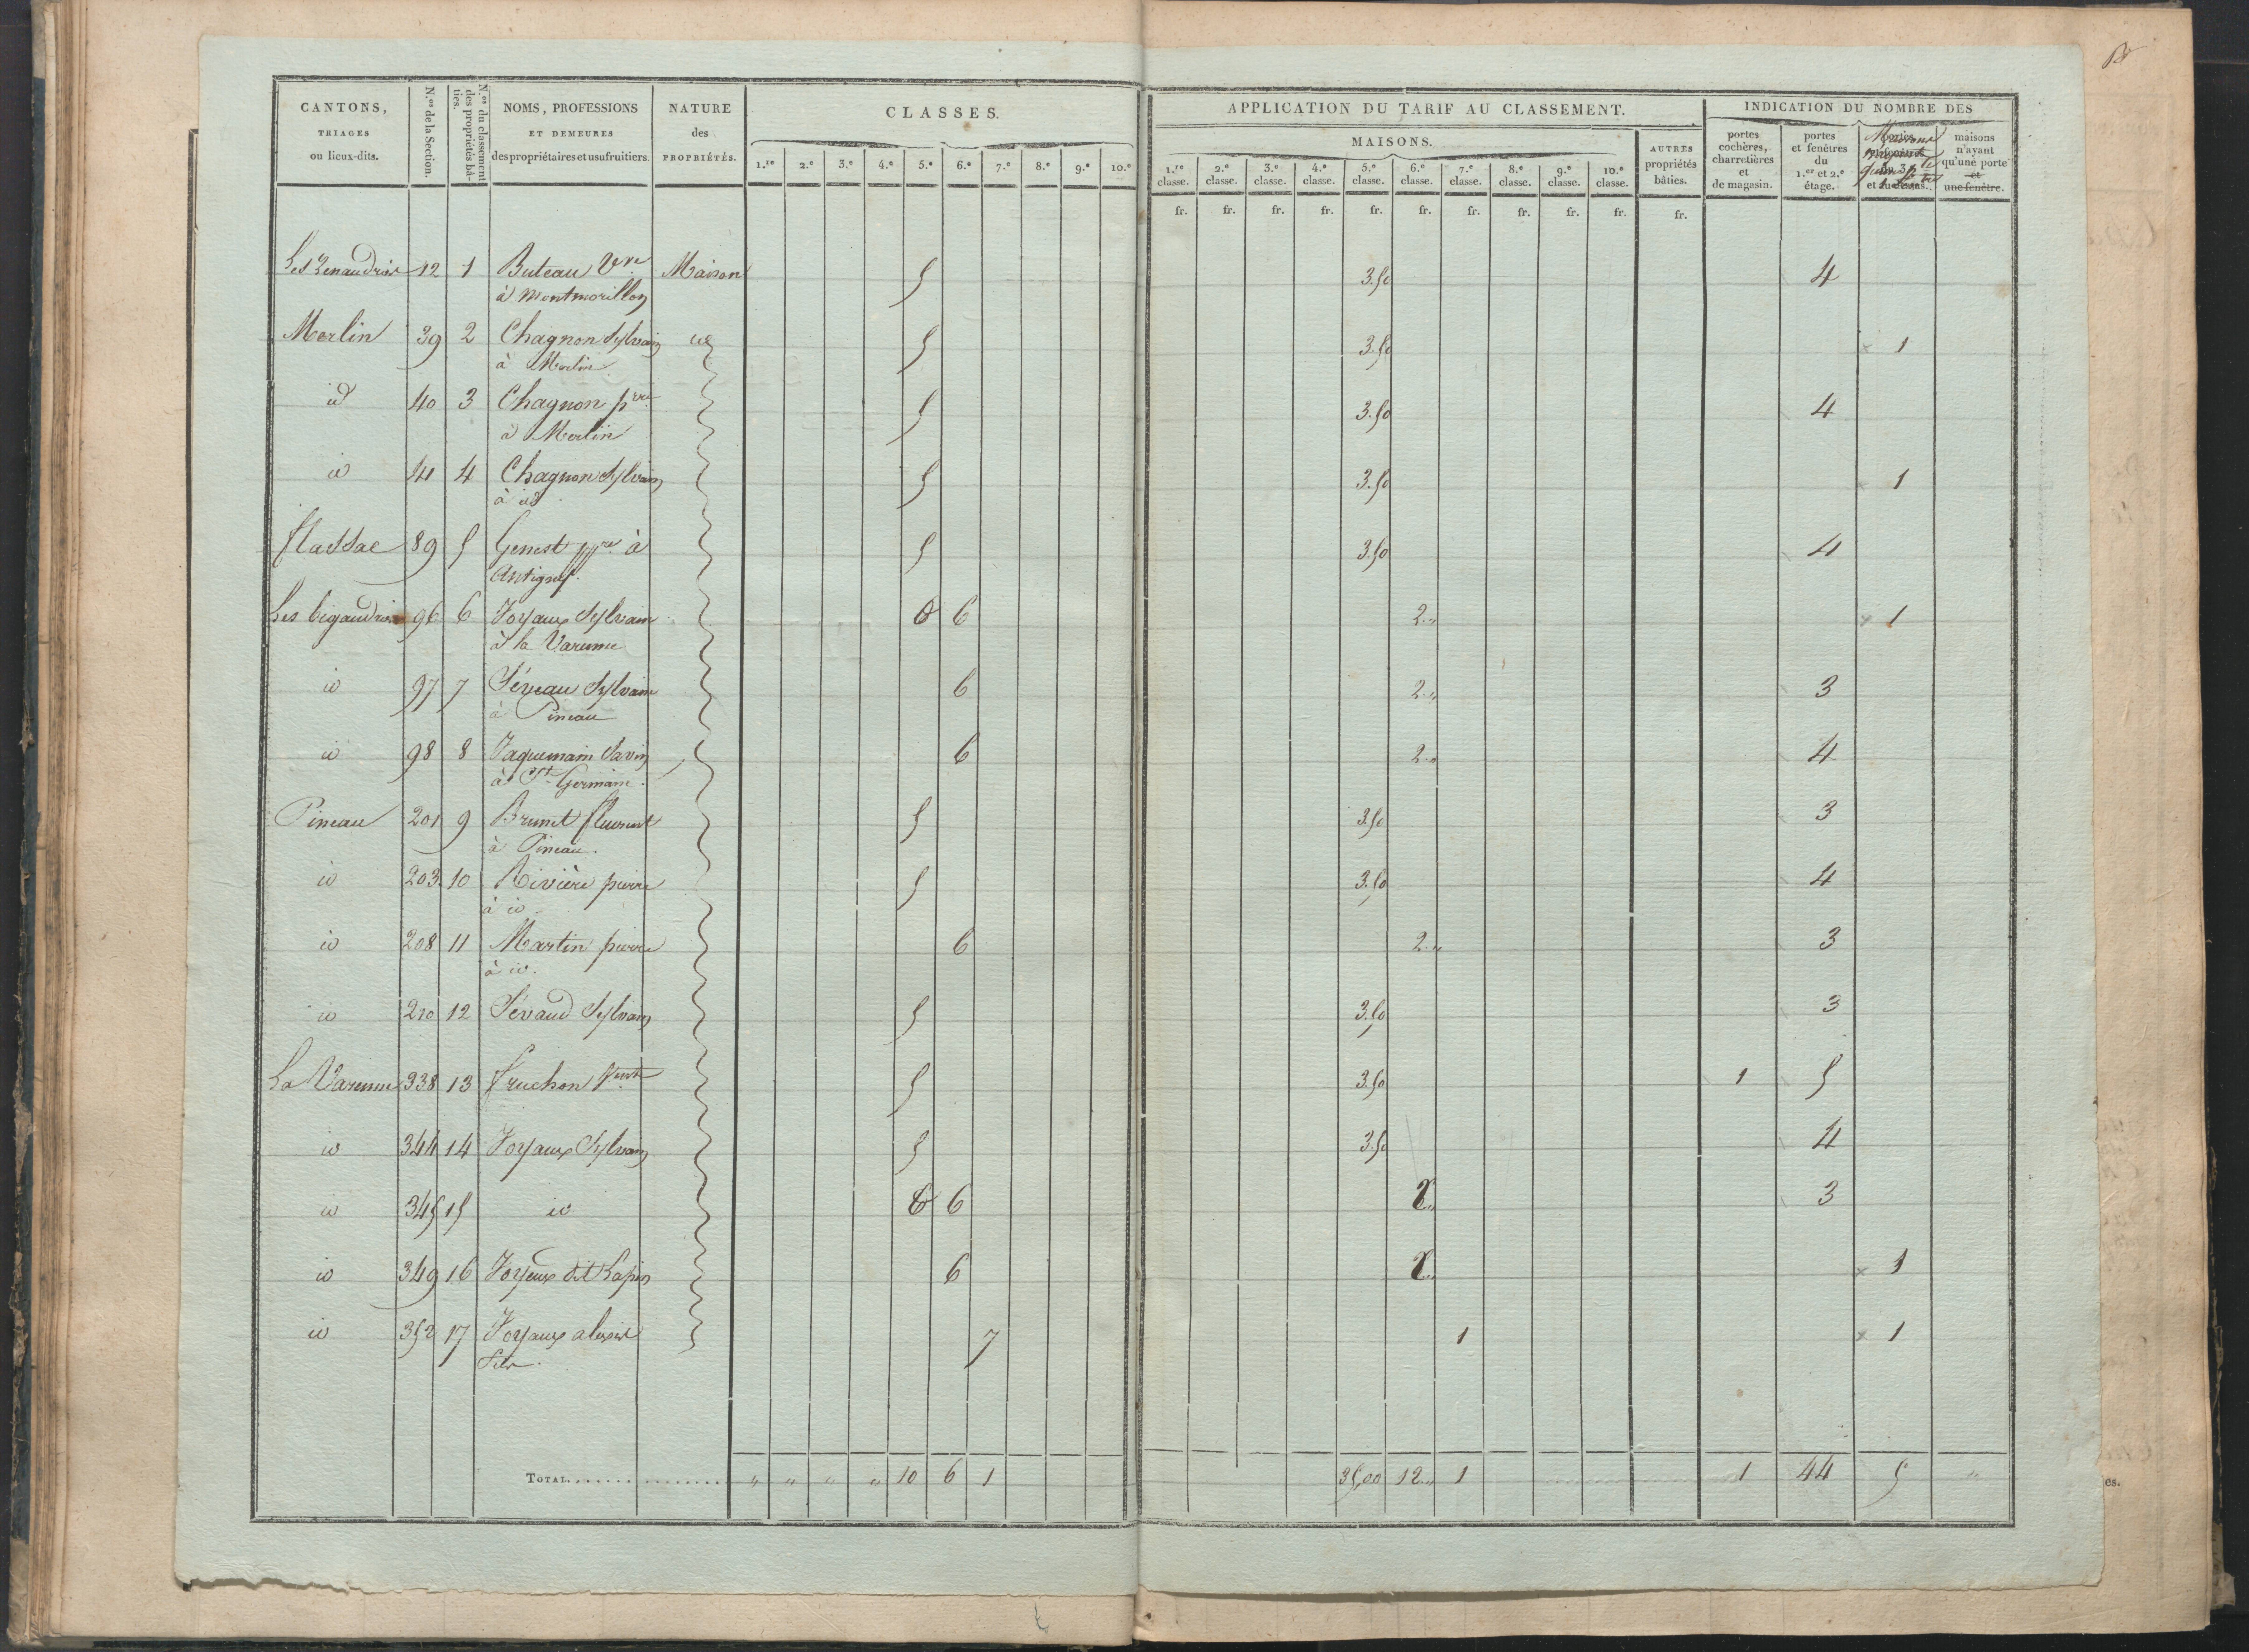 CANTONS,
TRIAGES
ou lieux-dits.
N.os de la Section.
N.os du classement des propriétés bâties.
NOMS, PROFESSIONS
ET DEMEURES
des propriétaires et usufruitiers.
NATURE
des
PROPRIÉTÉS.
CLASSES.
1.re 2.e 3.e 4.e 5.e 6.e 7.e 8.e 9.e 10.e
APPLICATION DU TARIF AU CLASSEMENT.
MAISONS.
1.re classe. 2.e classe. 3.e classe. 4.e classe. 5.e classe. 6.e classe. 7.e classe. 8.e classe. 9.e classe. 10.e classe.
AUTRES
propriétés
bâties.
INDICATION DU NOMBRE DES
portes
cochères,
charretières
et
de magasin.
portes
et fenêtres
du
1.er et 2.e
étage.
Maisons
maisons
n'ayant
qu'une porte
et
une fenêtre.
fr. fr. fr. fr. fr. fr. fr. fr. fr. fr. fr.
12 1 Buteau Vve Maison 5 3.50 4
à Montmorillon
Merlin 39 2 Chagnon Sylvain id 5 3.50 1
à Merlin
id 40 3 Chagnon pre 5 3.50 4
à Merlin
id 41 4 Chagnon Sylvain 5 3.50 1
à id
flassac 89 5 Genest ppre à 5 3.50 4
Antigny.
Les bigaudries 96 6 Joyaux Sylvain 6 2 „ 1
à la Varenne
id 97 7 Séveau Sylvain 6 2 „ 3
à Pineau
id 98 8 Jaquemain Savin 6 2 „ 4
à St Germain.
Pineau 201 9 Brunet fleurent 5 3.50 3
à Pineau.
id 203 10 Rivière pierre 5 3.50 4
à id
id 208 11 Martin pierre 6 2 „ 3
à id.
id 210 12 Sévaud Sylvain 5 3.50 3
La Varenne 338 13 fruchon 5 3.50 1 5
id 344 14 Joyaux Sylvain 5 3.50 4
id 345 15 id 6 2 „ 3
id 349 16 Joyeux dit Lapin 6 2 „ 1
id 352 17 Joyaux 7 1 1
TOTAL „ „ „ „ 10 6 1 35,00 12 „ 1 1 44 5 „
es.